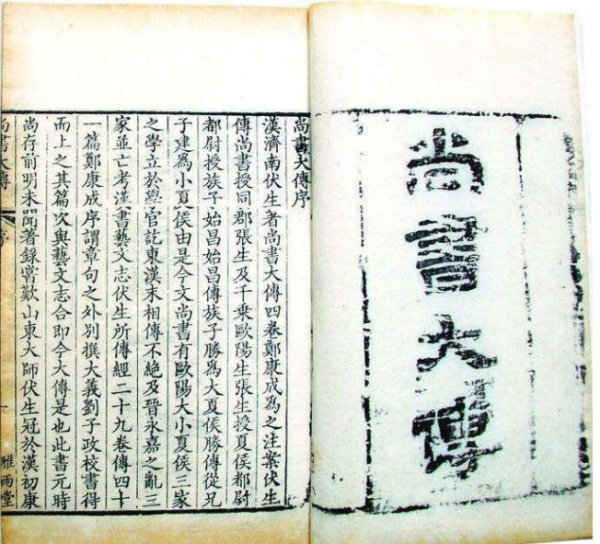 尚書大傳
尚書大傳序
漢濟南伏生者尚書大傳四卷鄭康成為之注案伏生
傳尚書授同郡張生及千乘歐陽生張生授夏侯都尉
都尉授族子始昌始昌傳族子勝爲大夏侯勝傳從兄
子建爲小夏侯由是今文尚書有歐陽大小夏侯三家
之學立於學官訖東漢末相傳不絶及晉永嘉之亂三
家並亡考漢書藝文志伏生所傳經二十九卷傳四十
一篇鄭康成序謂章句之外別撰大義劉子政校書得
而上之其篇次與藝文志合卽今大傳是也此書元時
尚存前明未聞著錄嘗歎山東大師伏生冠於漢初康
尚書大傳 序 一 雅雨堂